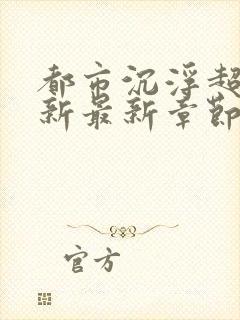 都市沉浮超
新最新章节
官方